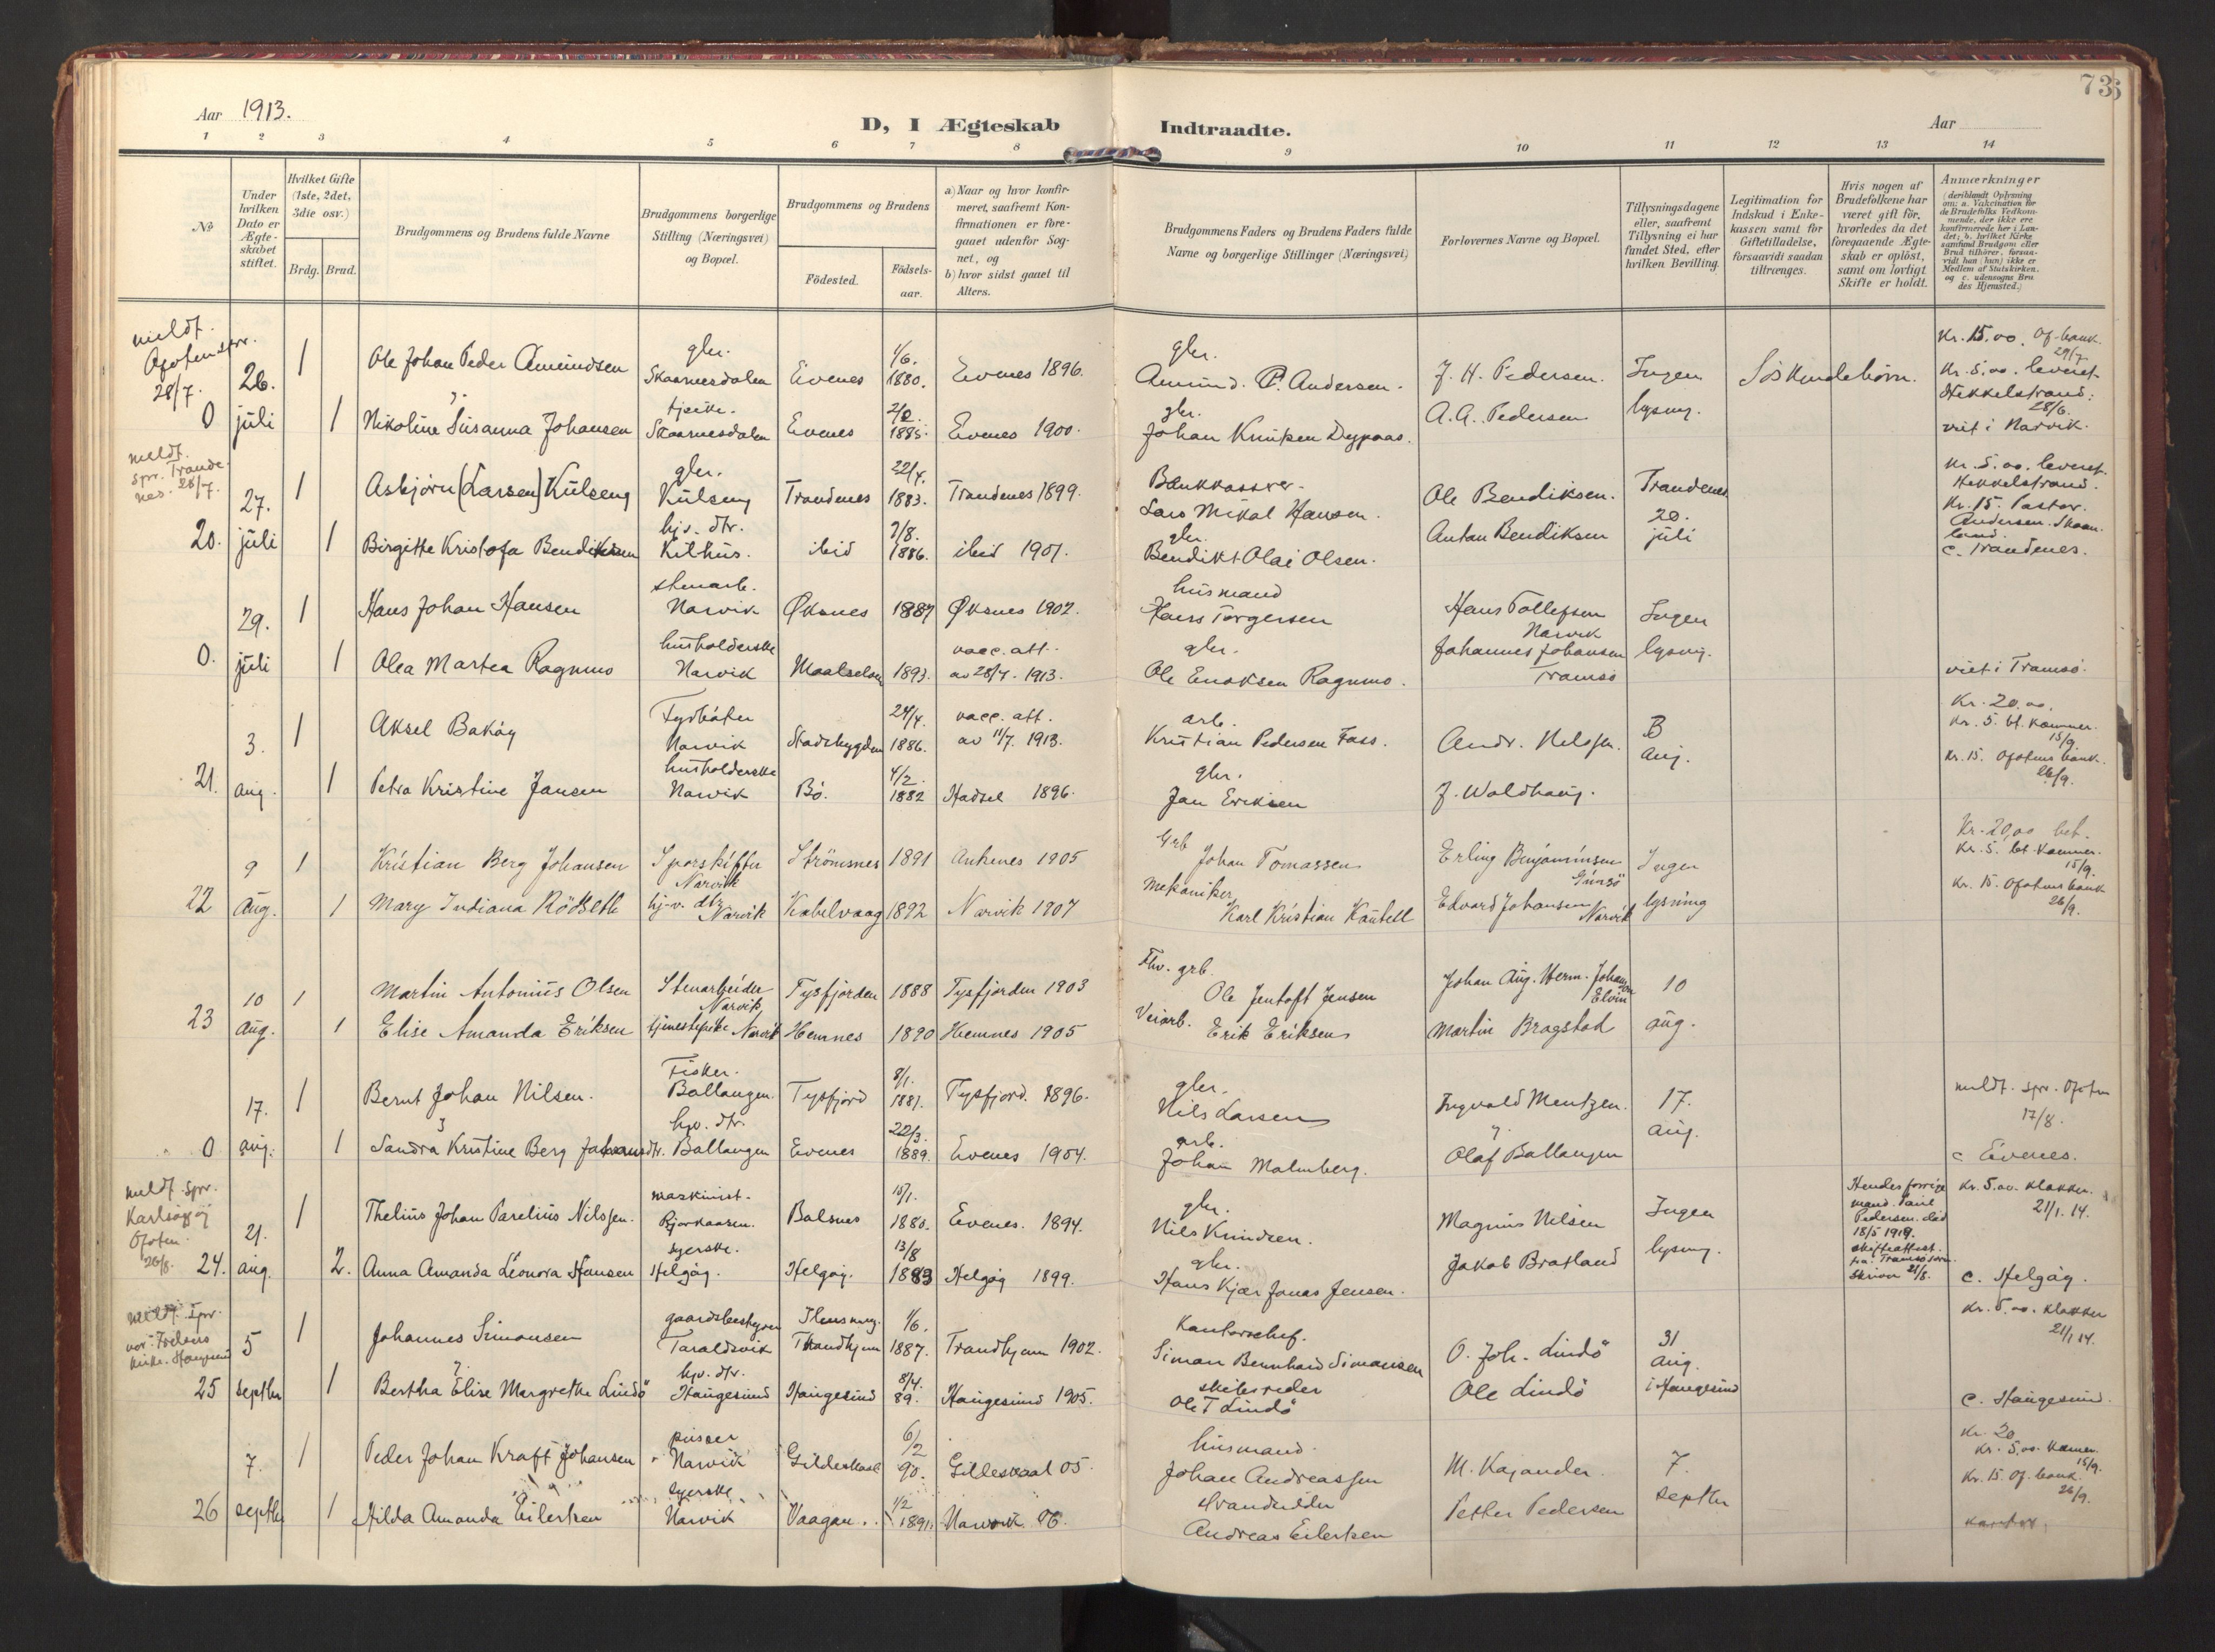 73
Aar 1913.
D, I Ægteskab Indtraadte.
Aar
1 2 3 4 5 6 7 8 9 10 11 12 13 14
No
Under hvilken Dato er Ægteskabet stiftet.
Hvilket Gifte (1ste, 2det, 3die osv.)
Brdg. Brud.
Brudgommens og Brudens fulde Navne
Brudgommens borgerlige Stilling (Næringsvei) og Bopæl.
Brudgommens og Brudens
Födested.
Födselsaar.
a) Naar og hvor konfirmeret, saafremt Konfirmationen er foregaaet udenfor Sognet, og
b) hvor sidst gaaet til Alters.
Brudgommens Faders og Brudens Faders fulde Navne og borgerlige Stillinger (Næringsvei)
Forlovernes Navne og Bopæl.
Tillysningsdagene eller, saafremt Tillysning ei har fundet Sted, efter hvilken Bevilling.
Legitimation for Indskud i Enkekassen samt for Giftetilladelse, forsaavidt saadan tiltrænges.
Hvis nogen af Brudefolkene har været gift för, hvorledes da det foregaaende Ægteskab er oplöst, samt om lovligt Skifte er holdt.
Anmærkninger
(deriblandt Oplysning om: a. Vakcination for de Brudefolks Vedkommende, der ikke ere konfirmerede her i Landet; b. hvilket Kirkesamfund Brudgom eller Brud tilhörer, forsaavidt han (hun) ikke er Medlem af Statskirken, og c. udensogns Brudes Hjemsted.)
meldt. Ofoten spr. 28/7.
26. 1 Ole Johan Peder Amundsen gbr. Skaanesdalen Evenes 1/6. 1880. Evenes 1896. gbr. Amund. P. Andersen. J. H. Pedersen. Ingen Söskendebörn. Kr. 15.00. Of-bank. 29/7
Kr. 5.00. leveret Hekkelstrand: 28/6.
0 juli 1 Nikoline Susanna Johansen tjeneste. Skaanesdalen Evenes 1885. Evenes 1900. gbr. Johan Knutsen Dypaas. A. A. Pedersen lysning. viet i Narvik.
meldt. spr. Trandenes. 28/7.
27. 1 Asbjörn (Larsen) Kulseng gbr. Kulseng Trandenes 22/4. 1883. Trandenes 1899. Bankkasser. Lars Mikal Hansen. Ole Bendiksen. Trandenes Kr. 5.00. leveret. Hekkelstrand.
Kr. 15. Pastor. Andersen. Skaanland.
20. juli 1 Birgitte Kristofa Bendiksen hjv. dtr. Kilhus. ibid 7/8. 1886. ibid 1901. gbr. Bendikt Olai Olsen. Anton Bendiksen 20. juli c. Trandenes.
29. 1 Hans Johan Hansen stenarb. Narvik Øksnes 1887 Øksnes 1902. husmand Hans Torgersen Hans Tollefsen Narvik Ingen
0. juli 1 Olea Martea Ragnmo husholderske Narvik Maalselven 1893. vacc. att. av 28/7. 1913. gbr. Ole Enoksen Ragnmo. Johannes Johansen Tromsö lysning. viet i Tromsö.
3. 1 Aksel Baköy Fyrböter Narvik Stadsbygden 24/4. 1886. vacc. att. av 11/7. 1913. arb. Kristian Pedersen Foss. Andr. Nelssen. 3 aug. Kr. 20.00.
Kr. 5. bt. Kæmner. 15/9
21. aug. 1 Petra Kristine Jansen husholderske Narvik Bö. 4/2. 1882 Hadsel 1896. gbr. Jan Eriksen J. Woldhaug. Kr. 15. Ofotens bank. 26/9.
9 1 Kristian Berg Johansen Sporskifter Narvik Strömsnes 1891 Ankenes 1905 Grb Johan Tomassen Erling Benjaminsen Ingen Kr. 20,00 bet.
Kr. 5. bt. Kæmner. 15/9.
22 Aug. 1 Mary Indiana Rödseth hj.v. dtr. Narvik Kabelvaag 1892 Narvik 1907 Mekaniker Karl Kristian Kantell Edvard Johansen Narvik lysning Kr. 15. Ofotens bank 26/9.
10 1 Martin Antonius Olsen Stenarbeider Narvik Tysfjorden 1888 Tysfjorden 1903 Fhv. grb. Ole Jentoft Jensen Johan Aug. Herm. Johanson Elvin 10
23 aug. 1 Elise Amanda Eriksen tjenestepike Narvik Hemnes 1890 Hemnes 1905 Veiarb. Erik Eriksen Martin Bragstad aug.
17. 1 Bernt Johan Nilsen. Fisker. Ballangen. Tysfjord 8/1. 1881. Tysfjord. 1896. gbr. Nils Larsen Ingvald Mentzen. 17. meldt. spr. Ofoten 17/8.
0 aug. 1 Sandra Kristine Berg Johansdtr. hjv. dtr. Ballangen Evenes 22/3. 1889. Evenes 1904. arb. Johan Malmberg. Olaf Ballangen aug. c Evenes.
meldt. spr. Karlsöy og Ofoten. 26/8.
21. 1 Thelius Johan Parelius Nilssen. maskinist. Bjorkaasen. Balsnes 15/1. 1880. Evenes. 1894. gbr. Nils Knudsen. Magnus Nilsen Ingen Hendes forrige mand. Paul Pedersen. död 18/5 1912. skifteattest. fra Tromsö sorenskriver 21/8. Kr. 5.00. klokker. 21/1. 14.
24. aug. 2. Anna Amanda Leonora Hansen syerske. Helgöy. Helgöy. 13/8 1883 Helgöy 1899. gbr. Hans Kjær Jonas Jensen. Jakob Bratland lysning. c. Helgöy.
meldt. spr. vor Frelsers kirke. Haugesund
5 1 Johannes Simonsen gaardsbestyrer Taraldsvik Trondhjem 1/6. 1887. Trondhjem 1902. Kontorchef. Simon Bernhard Simonsen O. Joh. Lindö 31 aug. Kr. 5.00. klokker 21/1 14.
25 septbr 1 Bertha Elise Margrethe Lindö hjv. dtr. Haugesund Haugesund 8/4. 89. Haugesund 1905. skibsreder Ole T Lindö Ole Lindö i Haugesund c. Haugesund.
7. 1 Peder Johan Kraft Johansen pusser Narvik Gildeskaal 6/2 90. Gildeskaal 05. husmand. Johan Andreassen M. Kajander. 7. Kr. 20
Kr. 5.00. Kæmn. 15/9.
Kr. 15. Of. bank. 26/9.
26 septbr 1 Hilda Amanda Eilertsen syerske Narvik Vaagan. 1/2 1891. Narvik 06. strandsidder Andreas Eilertsen Petter Pedersen septbr